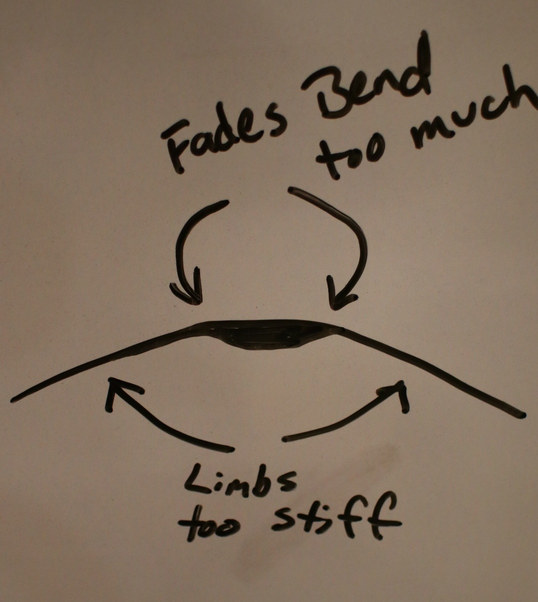 Fades Bend
too much
Limbs
too stiff